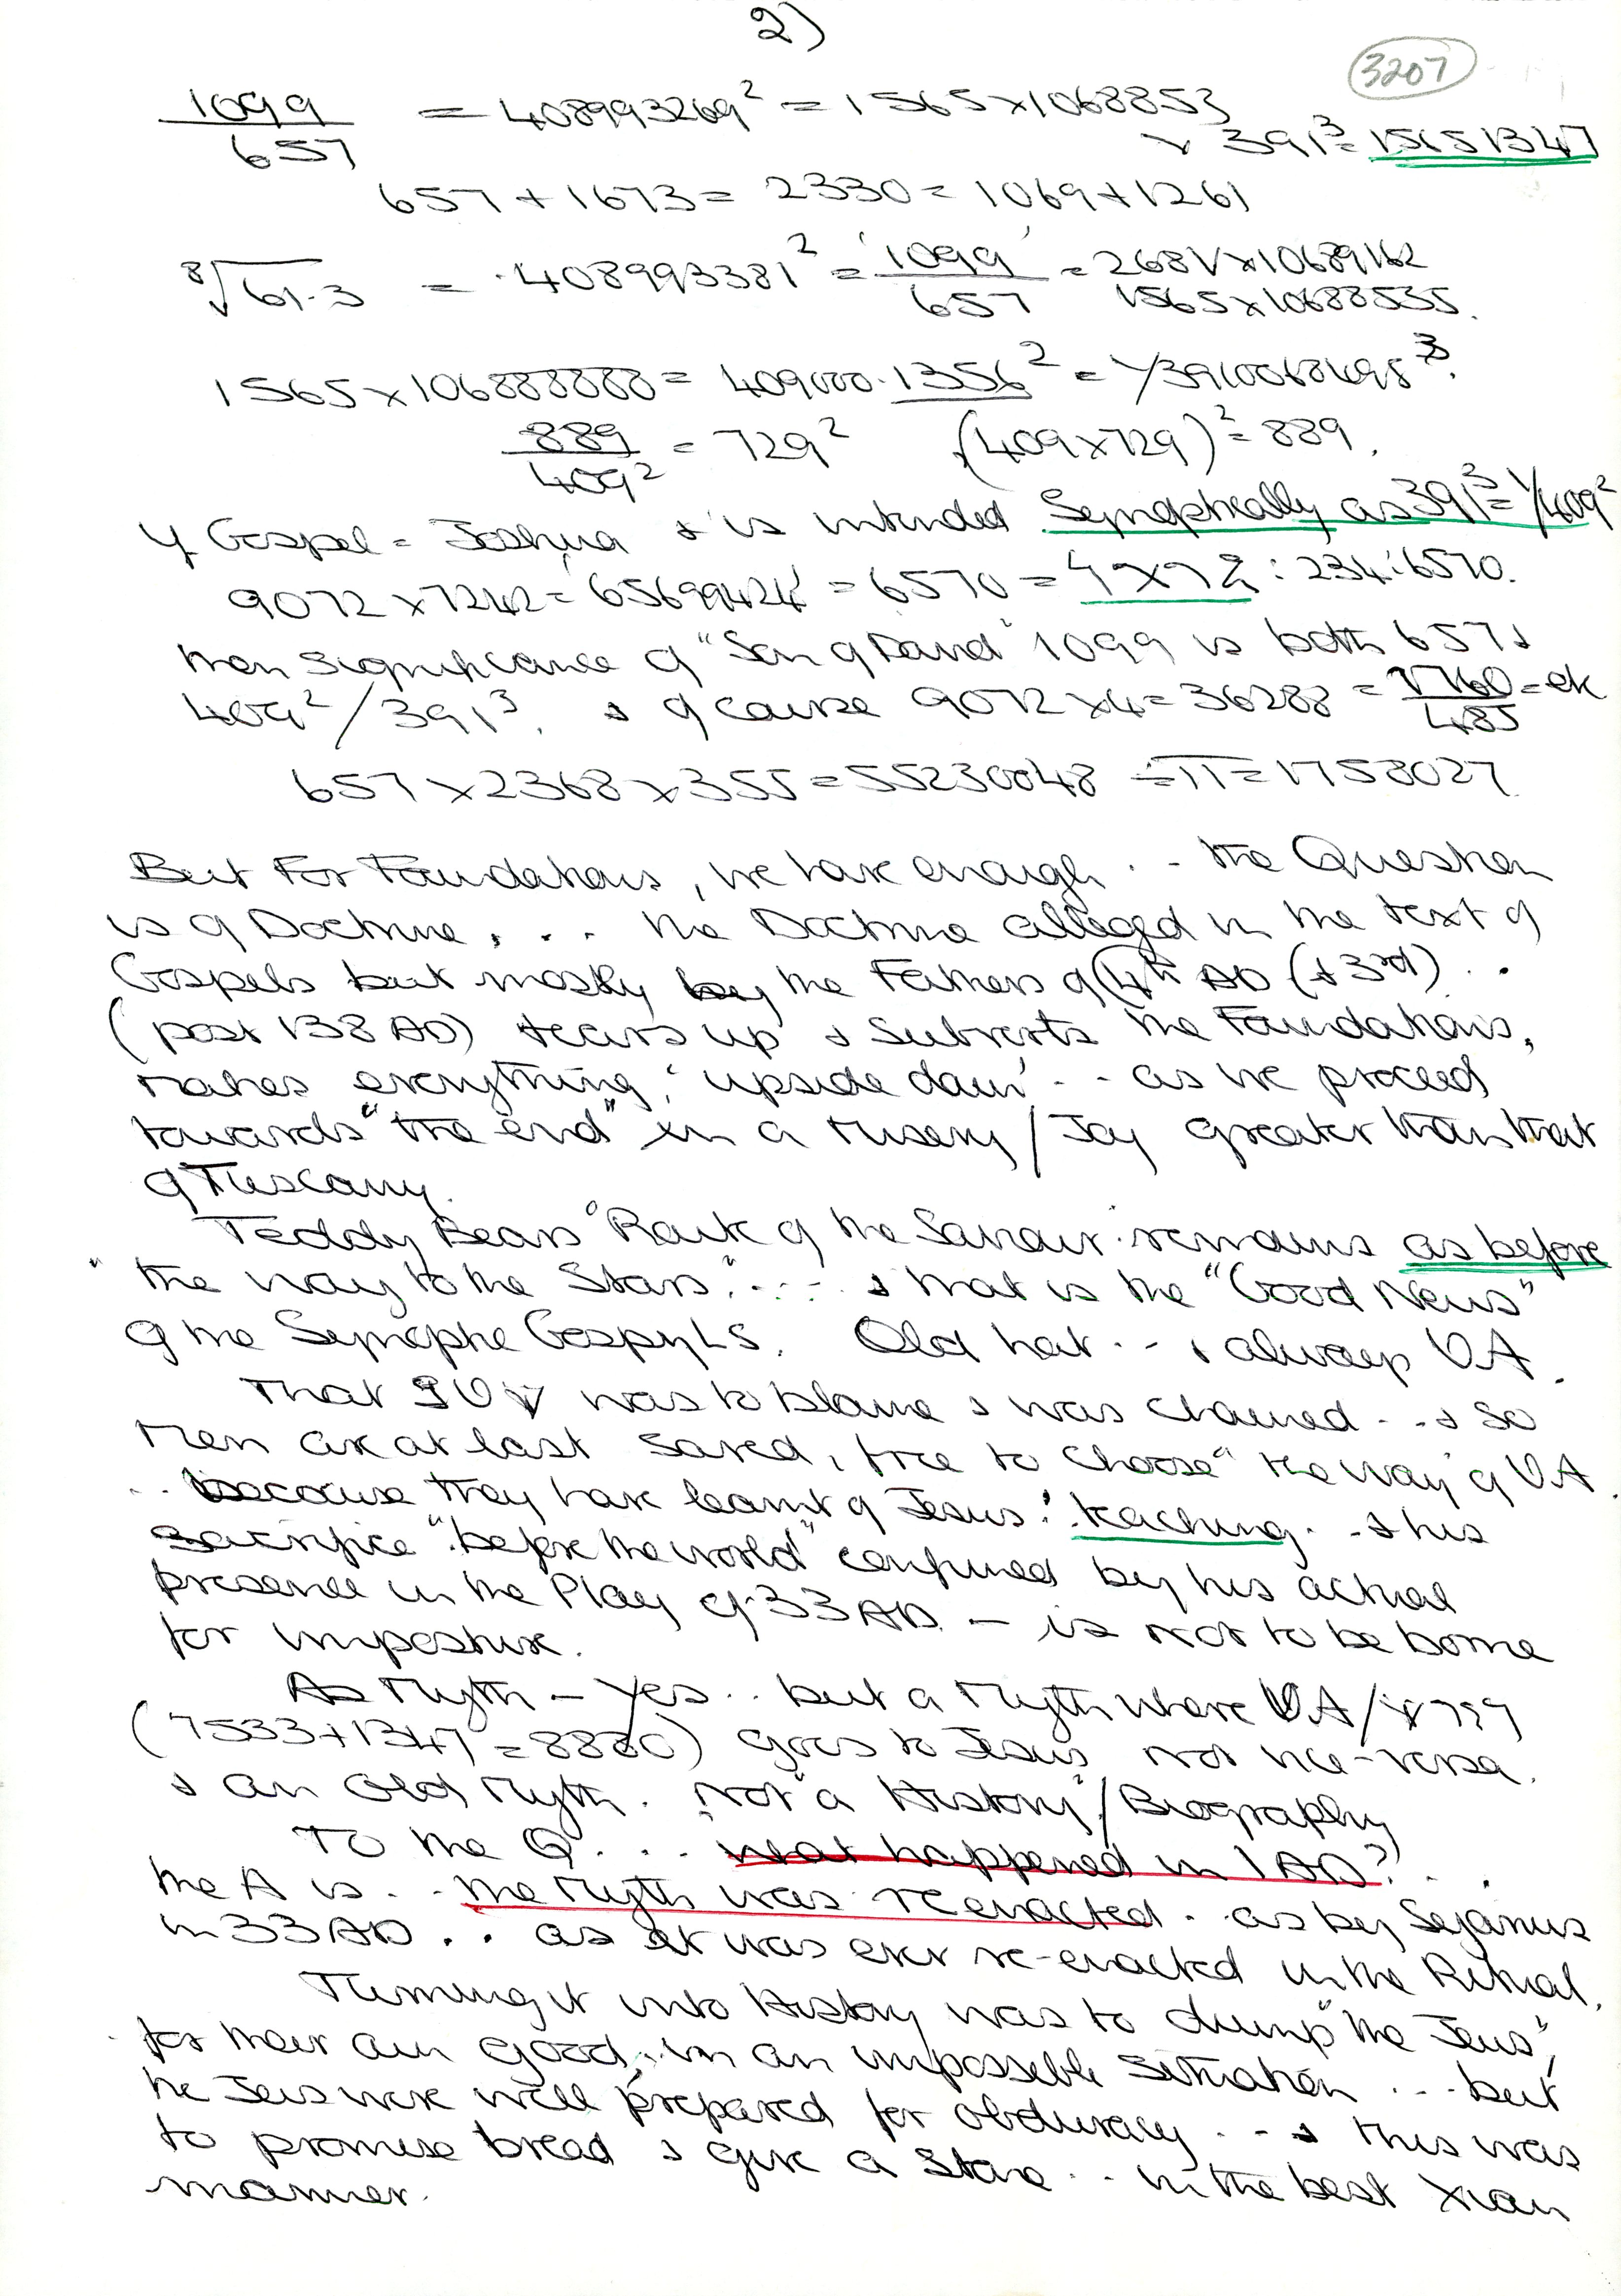 2)
3207
1099/657 = 408993269² = 1565×1068853
× 391³ = 15651347
657 + 1673 = 2330 = 1069 + 1261
⁸√61.3 = .408993381² = '1099'/657 = 2681/×10689162
1565×10688535.
1565×106888888 = 409000.1356² = 1/3910068698³.
889/409² = 729² (409×729)² = 889.
If Gospel = Joshua & is intended Synoptically as 391³ = 1/409²
9072×7242 = '65699424' = 6570 = 9×72 : 234:6570.
then significance of "Son of David" 1099 is both 657 &
409²/391³. & of course 9072×4 = 36288 = 1760/485 = ek
657×2368×355 = 55230048 ÷ π = 1758027
But For Foundations, we have enough .. the Question
is of Doctrine... the Doctrine alleged in the text of
Gospels but mostly by the Fathers of (4th AD (+3rd) ..
(post 138 AD) tears up & subverts the Foundations,
makes everything 'upside down' .. as we proceed
towards "the end" in a misery/Joy greater than that
of Tuscany.
Teddy Bears "Rank of the Saviour remains as before
"the way to the Stars".... & that is the "Good News"
of the Synoptic GospyLS. Old hat .. & always VA.
That was to blame & was chained .. & so
Men are at last saved, free to choose "the way" of VA.
.. because they have learnt of Jesus' teaching .. & his
sacrifice "before the world" confirmed by his actual
presence in the Play of 33 AD. — is not to be borne
for imposture.
As Myth — yes .. but a Myth where VA/
(7533+1347 = 8880) goes to Jesus not vice-versa.
& an old Myth. Not "a History"/Biography
To the Q. ... what happened in 1 AD? ..
the A is .. the Myth was re enacted .. as by Sejanus
in 33 AD .. as it was ever re-enacted in the Ritual.
Turning it into History was to dump "the Jews",
for their own good, in an impossible situation ... but
the Jews were well prepared for obduracy .. & this was
to promise bread & give a stone .. in the best Xian
manner.